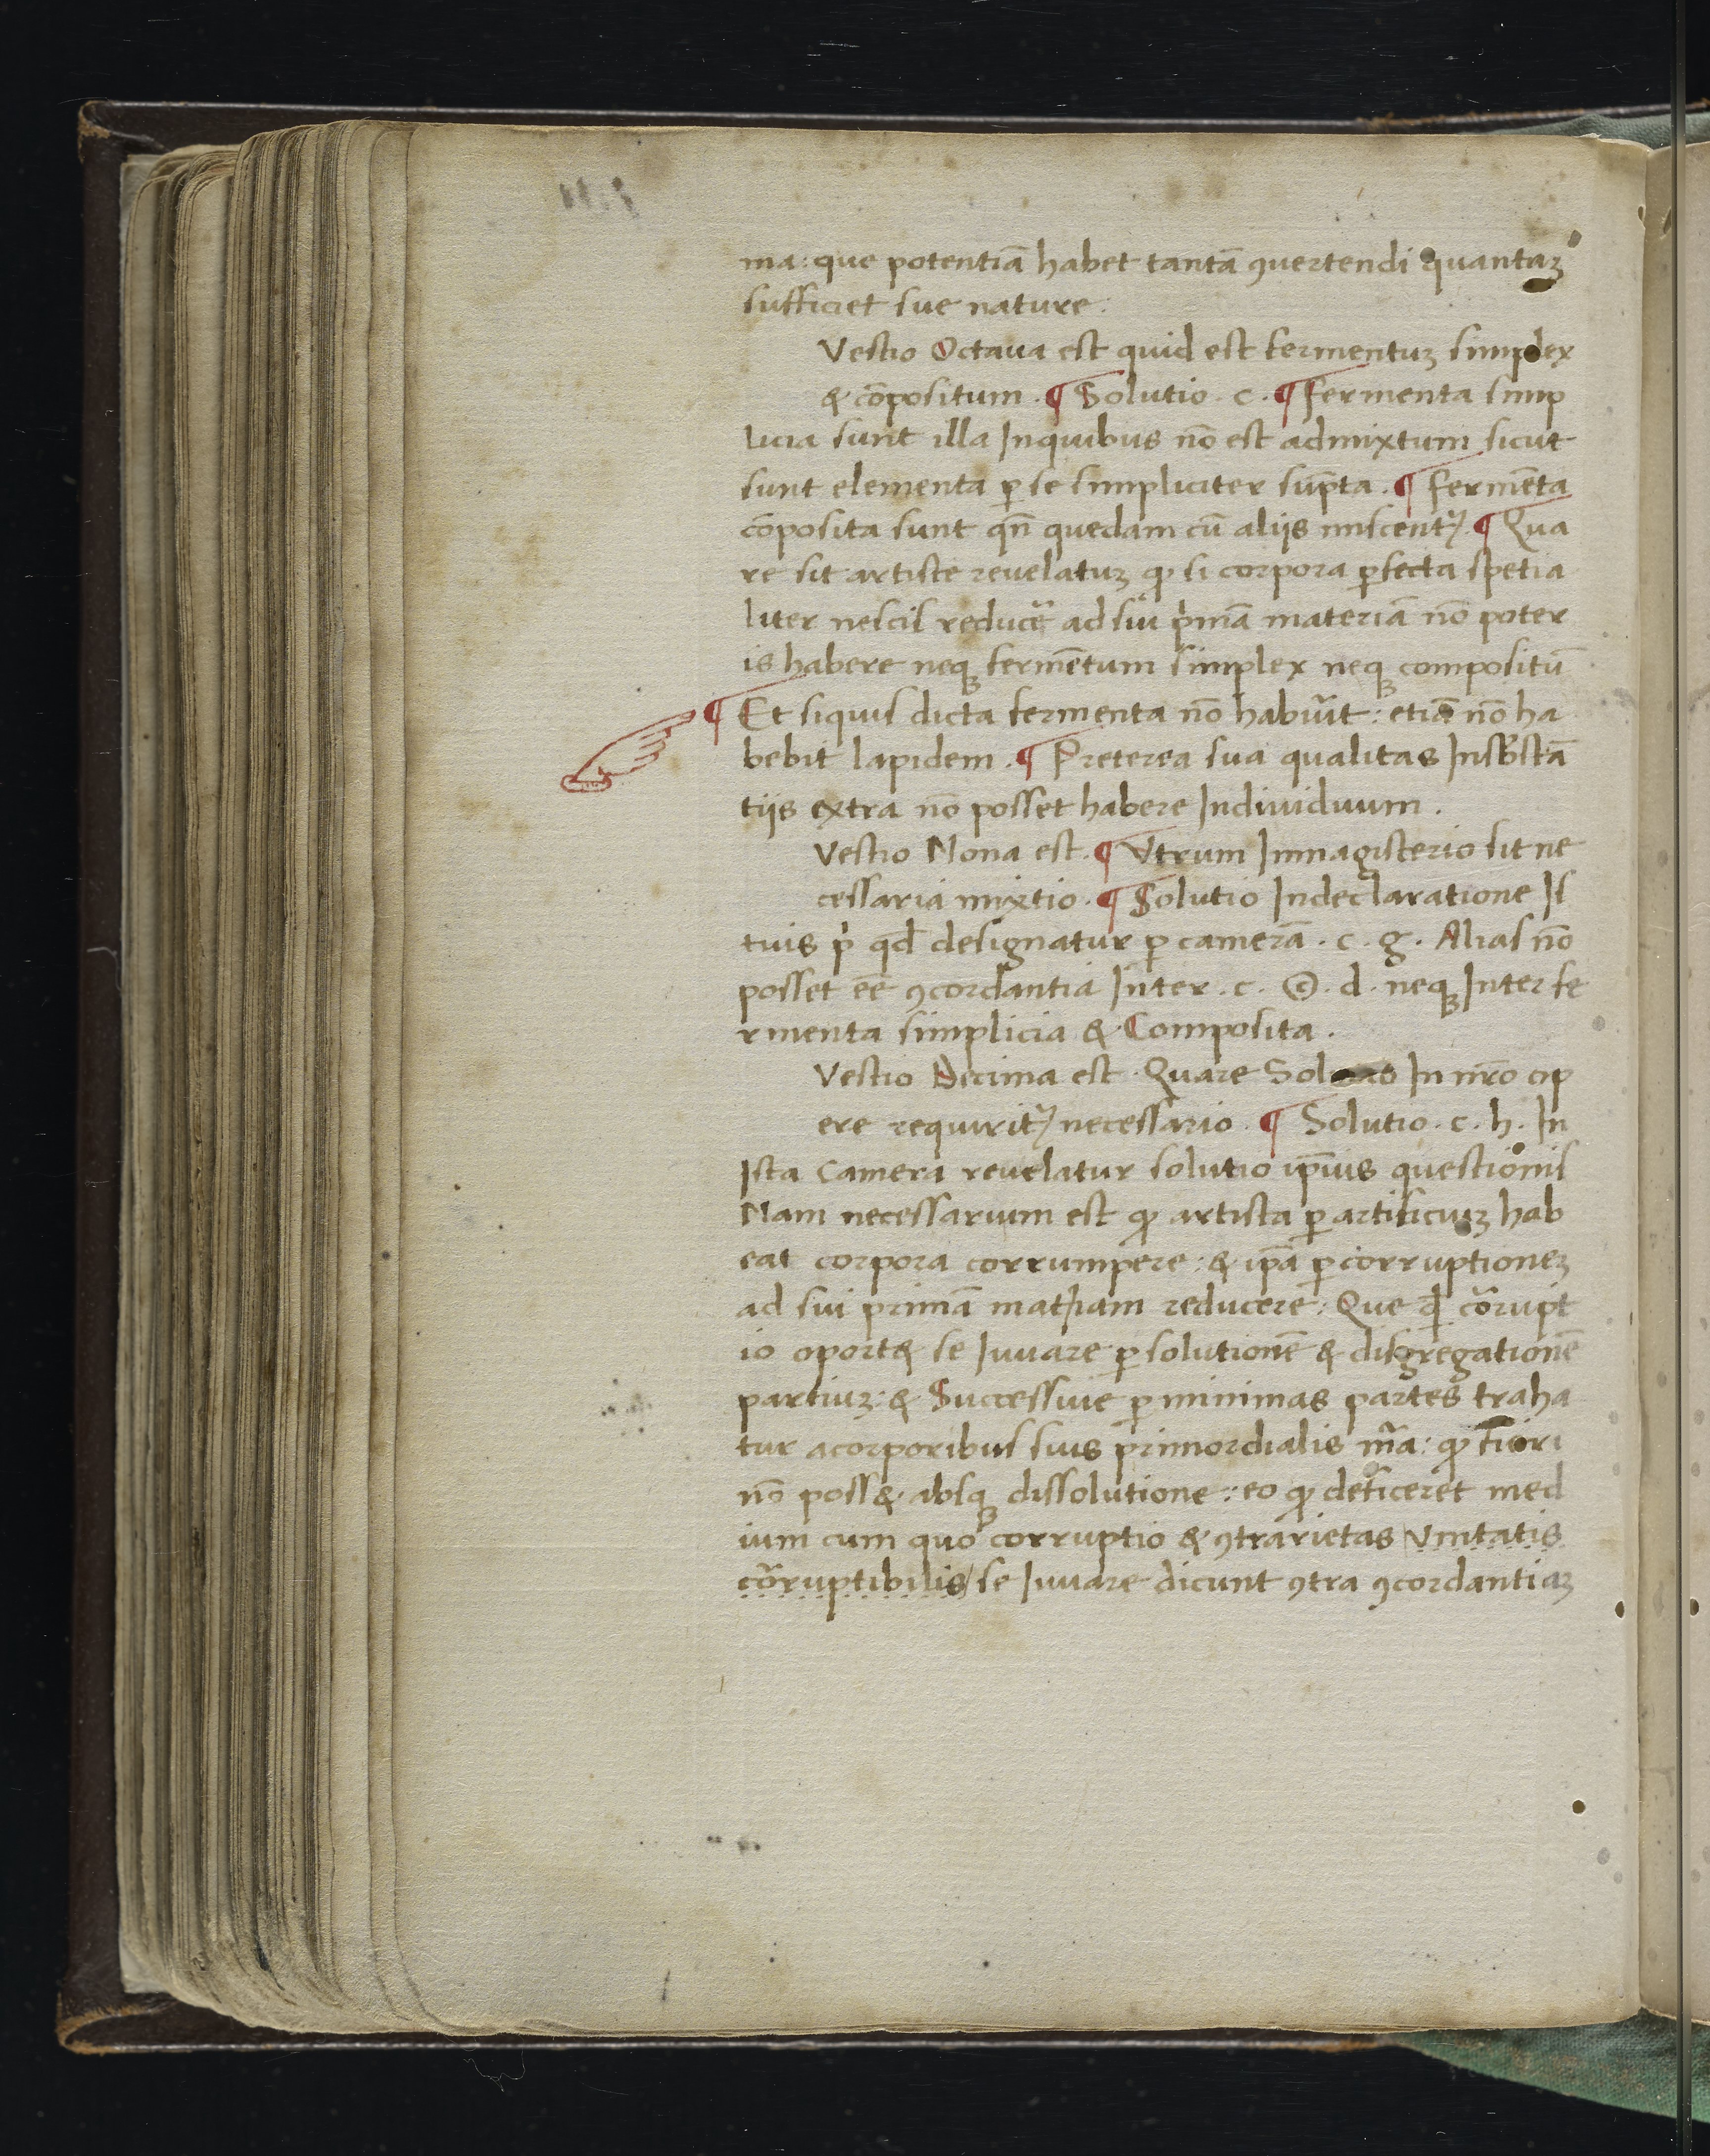 ma: que potentiā habet tantā ꝯuertendi quantaꝫ
sufficiet sue nature.
Vestio Octaua est quid est fermentuꝫ simplex
& cōpositum. ¶ Solutio. c. ¶ fermenta simp
licia sunt illa Inquibus nō est admixtum sicut
sunt elementa ꝑ se simpliciter sūpta. ¶ fermēta
cōposita sunt qn̄ quedam cū aliis miscent᷑ ¶ Qua
re sit artiste reuelatuꝫ ꝙ si corpora ꝑfecta spetia
liter nescis reducē ad sui pⁱmā materiā nō poter
is habere neqꝫ fermētum simplex neqꝫ compositū
¶ Et siquis dicta fermenta nō habūit: etiā nō ha
bebit lapidem. ¶ Preterea sua qualitas Insb̄stā
tiis extra nō posset habere Indiuiduum.
Vestio Nona est. ¶ Vtrum Inmagisterio sit ne
cessaria mixtio. ¶ Solutio Indeclaratione Is
tuis pⁱ qd̄ designatur ꝑ camerā. c. g. Alias nō
posset eē ꝯcordantia Inter. c. ⓒ. d. neqꝫ Inter fe
rmenta simplicia & Composita.
Vestio Decima est. Quare In nr̄o op
ere requirit᷑ necessario. ¶ Solutio. c. h. In
Ista Camera reuelatur solutio ip̄ius questionis
Nam necessarium est ꝙ artista ꝑ artificiuꝫ hab
eat corpora corrumpere: & ip̄a ꝑ corruptioneꝫ
ad sui primā matiam reducere: Que qd̄ cōrupt
io oport& se Iuuare ꝑ solutionē & disgregationē
partiuꝫ: & Successiue ꝑ minimas partes traha
tur acorporibus suis primordialis mā: ꝙ fieri
nō poss& absqꝫ dissolutione: eo ꝙ deficeret med
ium cum quo corruptio & ꝯtrarietas vnitatis
cōruptibilis/ se Iuuare dicunt ꝯtra ꝯcordantiaꝫ